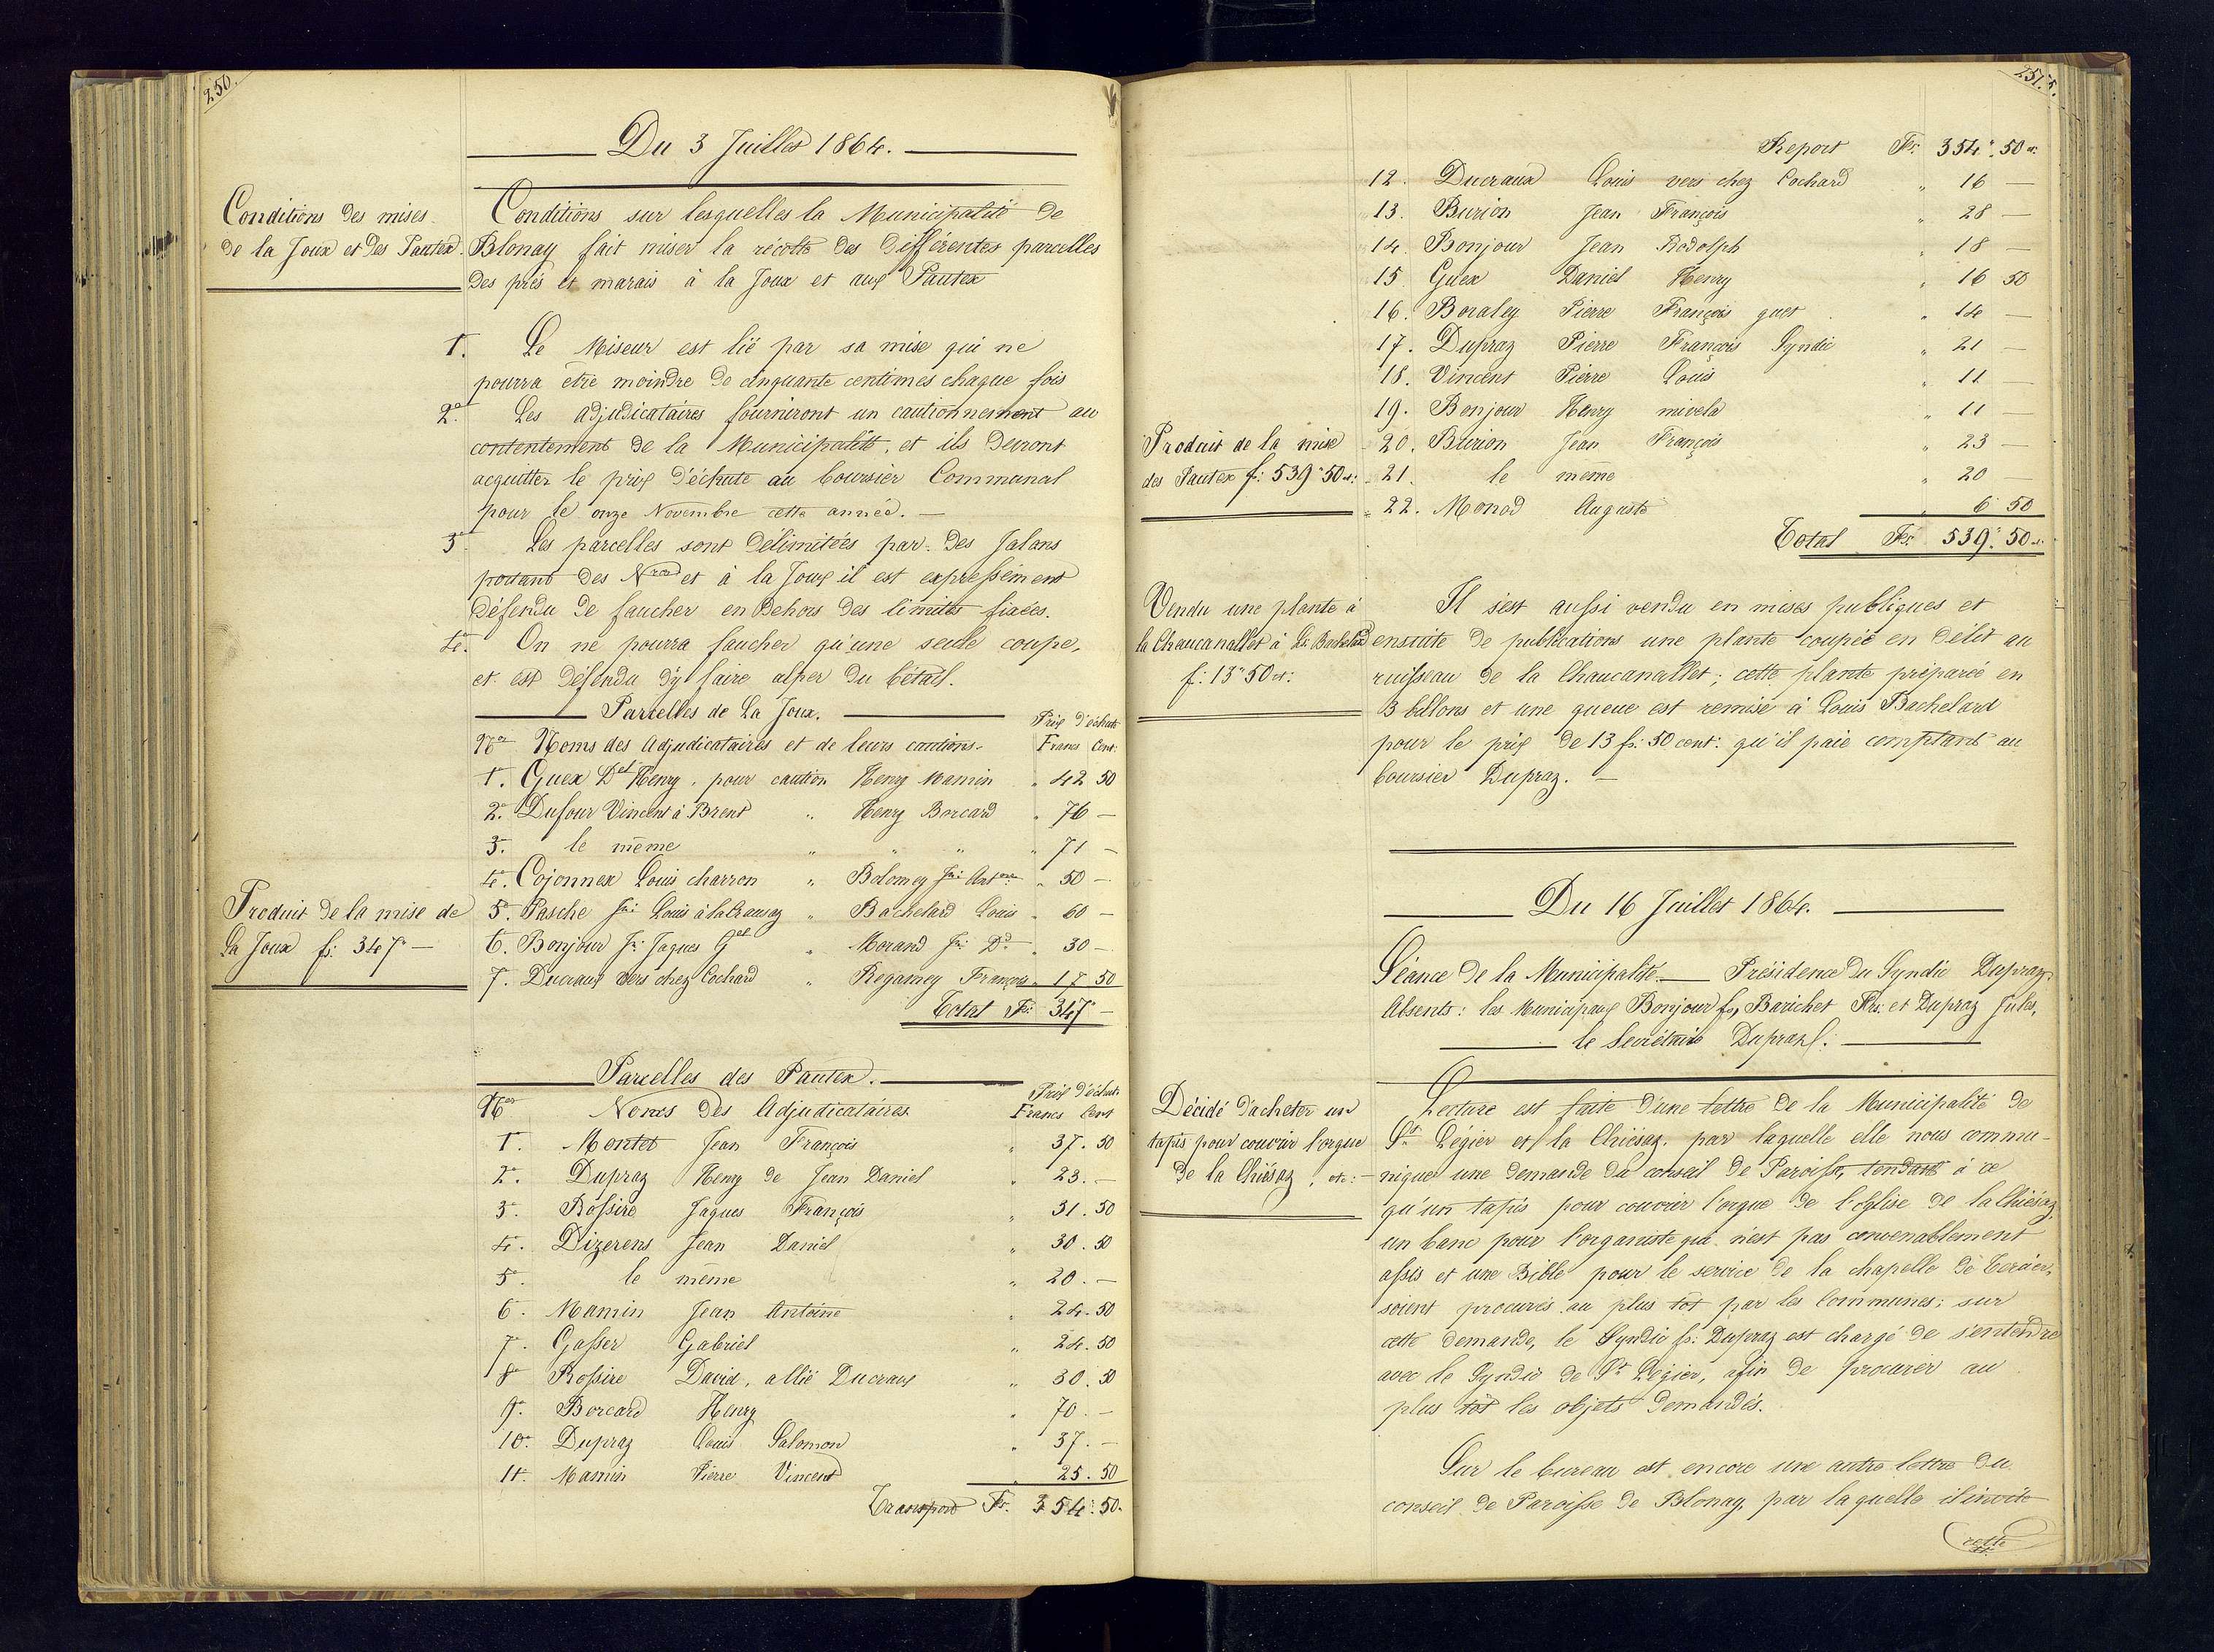 250.
Du 3 Juillet 1864.
Conditions des mises
de la Joux et des Pautex.
Conditions sur lesquelles la Municipalité de
Blonay fait miser la récolte des différentes parcelles
des prés et marais à la Joux et aux Pautex
1°. Le Miseur est lié par sa mise qui ne
pourra être moindre de cinquante centimes chaque fois
2°. Les adjudicataires fourniront un cautionnement au
contentement de la Municipalité, et ils devront
acquitter le prix d'échute au boursier Communal
pour le onze Novembre cette année. —
3°. Les parcelles sont délimitées par des Jalons
portant des Nros et à la Joux il est expressément
défendu de faucher en dehors des limites fixées.
4°. On ne pourra faucher qu'une seule coupe,
et est défendu d'y faire alper du bétail.
Parcelles de La Joux.
Prix d'échute
Nos Noms des Adjudicataires et de leurs cautions. Francs Cent:
1°. Guex Del Henry, pour caution Henry Mamin " 42 50
2°. Dufour Vincent à Brent " Henry Borcard " 76 —
3°. le même " " " " 71 —
4°. Cojonnex Louis charron " Bolomey Jn: Antne " 50 —
Produit de la mise de
La Joux fs: 347" —
5°. Pasche Jn: Louis à la Crausaz " Bachelard Louis " 60 —
6. Bonjour Jn: Jaques Gel " Morand Jn: Dd " 30 —
7. Ducraux vers chez Cochard " Regamey François " 17 50
Total Fs: 347" —
Parcelles des Pautex.
Prix d'échute
Nos Noms des Adjudicataires Francs Cent
1°. Montet Jean François " 37. 50
2°. Dupraz Henry de Jean Daniel " 23. —
3°. Rossire Jaques François " 31. 50
4°. Dizerens Jean Daniel " 30. 50
5°. le même " 20. —
6°. Mamin Jean Antoine " 24. 50
7°. Gasser Gabriel " 24. 50
8° Rossire David, allié Ducraux " 30. 50
9°. Borcard Henry " 70. —
10°. Dupraz Louis Salomon " 37. —
11. Mamin Pierre Vincent " 25. 50
Transport Fr. 354". 50.
251.
Report Fr: 354". 50 c:
12. Ducraux Louis vers chez Cochard " 16 —
13. Burion Jean François " 28 —
14. Bonjour Jean Rodolph " 18 —
15. Guex Daniel Henry " 16 50
16. Boraley Pierre François guet " 14 —
17. Dupraz Pierre François Syndic " 21 —
18. Vincent Pierre Louis " 11 —
19. Bonjour Henry mivela " 11 —
Produit de la mise
des Pautex f: 539" 50 c:
20. Burion Jean François " 23 —
21. le même " 20 —
22. Monod Auguste " 6 50
Total Fs: 539". 50 c.
Vendu une plante à
la Chaucanallet à Ls: Bachelard
f: 13" 50 ct:
Il s'est aussi vendu en mises publiques et
ensuite de publications une plante coupée en délit au
ruisseau de la Chaucanallet; cette plante préparée en
3 billons et une queue est remise à Louis Bachelard
pour le prix de 13 fr: 50 cent: qu'il paie comptant au
boursier Dupraz. —
Du 16 Juillet 1864.
Séance de la Municipalité. — Présidence du Syndic Dupraz.
Absents: les Municipaux Bonjour fs, Barichet Frs: et Dupraz Jules,
le Secrétaire Dupraz f:
Décidé d'acheter un
tapis pour couvrir l'orgue
de la Chiésaz, etc: —
Lecture est faite d'une lettre de la Municipalité de
St Légier et la Chiésaz, par laquelle elle nous commu-
nique une demande du conseil de Paroisse, tendant à ce
qu'un tapis pour couvrir l'orgue de l'église de la Chiésaz,
un banc pour l'organiste qui n'est pas convenablement
assis et une Bible pour le service de la chapelle de Cercier,
soient procurés au plus tôt par les Communes; sur
cette demande, le Syndic fs: Dupraz est chargé de s'entendre
avec le Syndic de St Légier, afin de procurer au
plus tôt les objets demandés.
Sur le bureau est encore une autre lettre du
conseil de Paroisse de Blonay, par laquelle il invite
cette